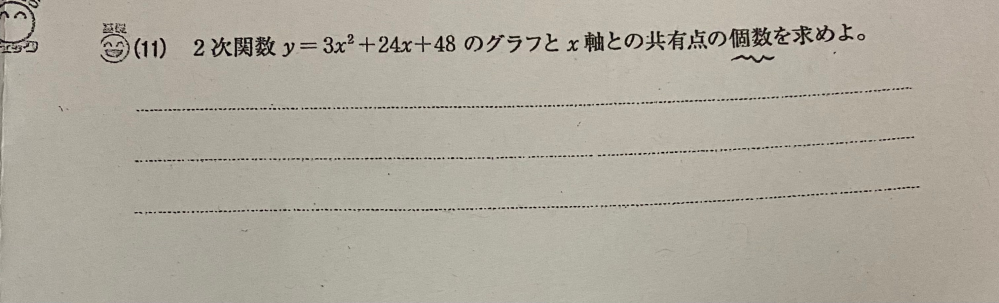 基礎
(11) 2次関数 y=3x²+24x+48 のグラフと x 軸との共有点の個数を求めよ。